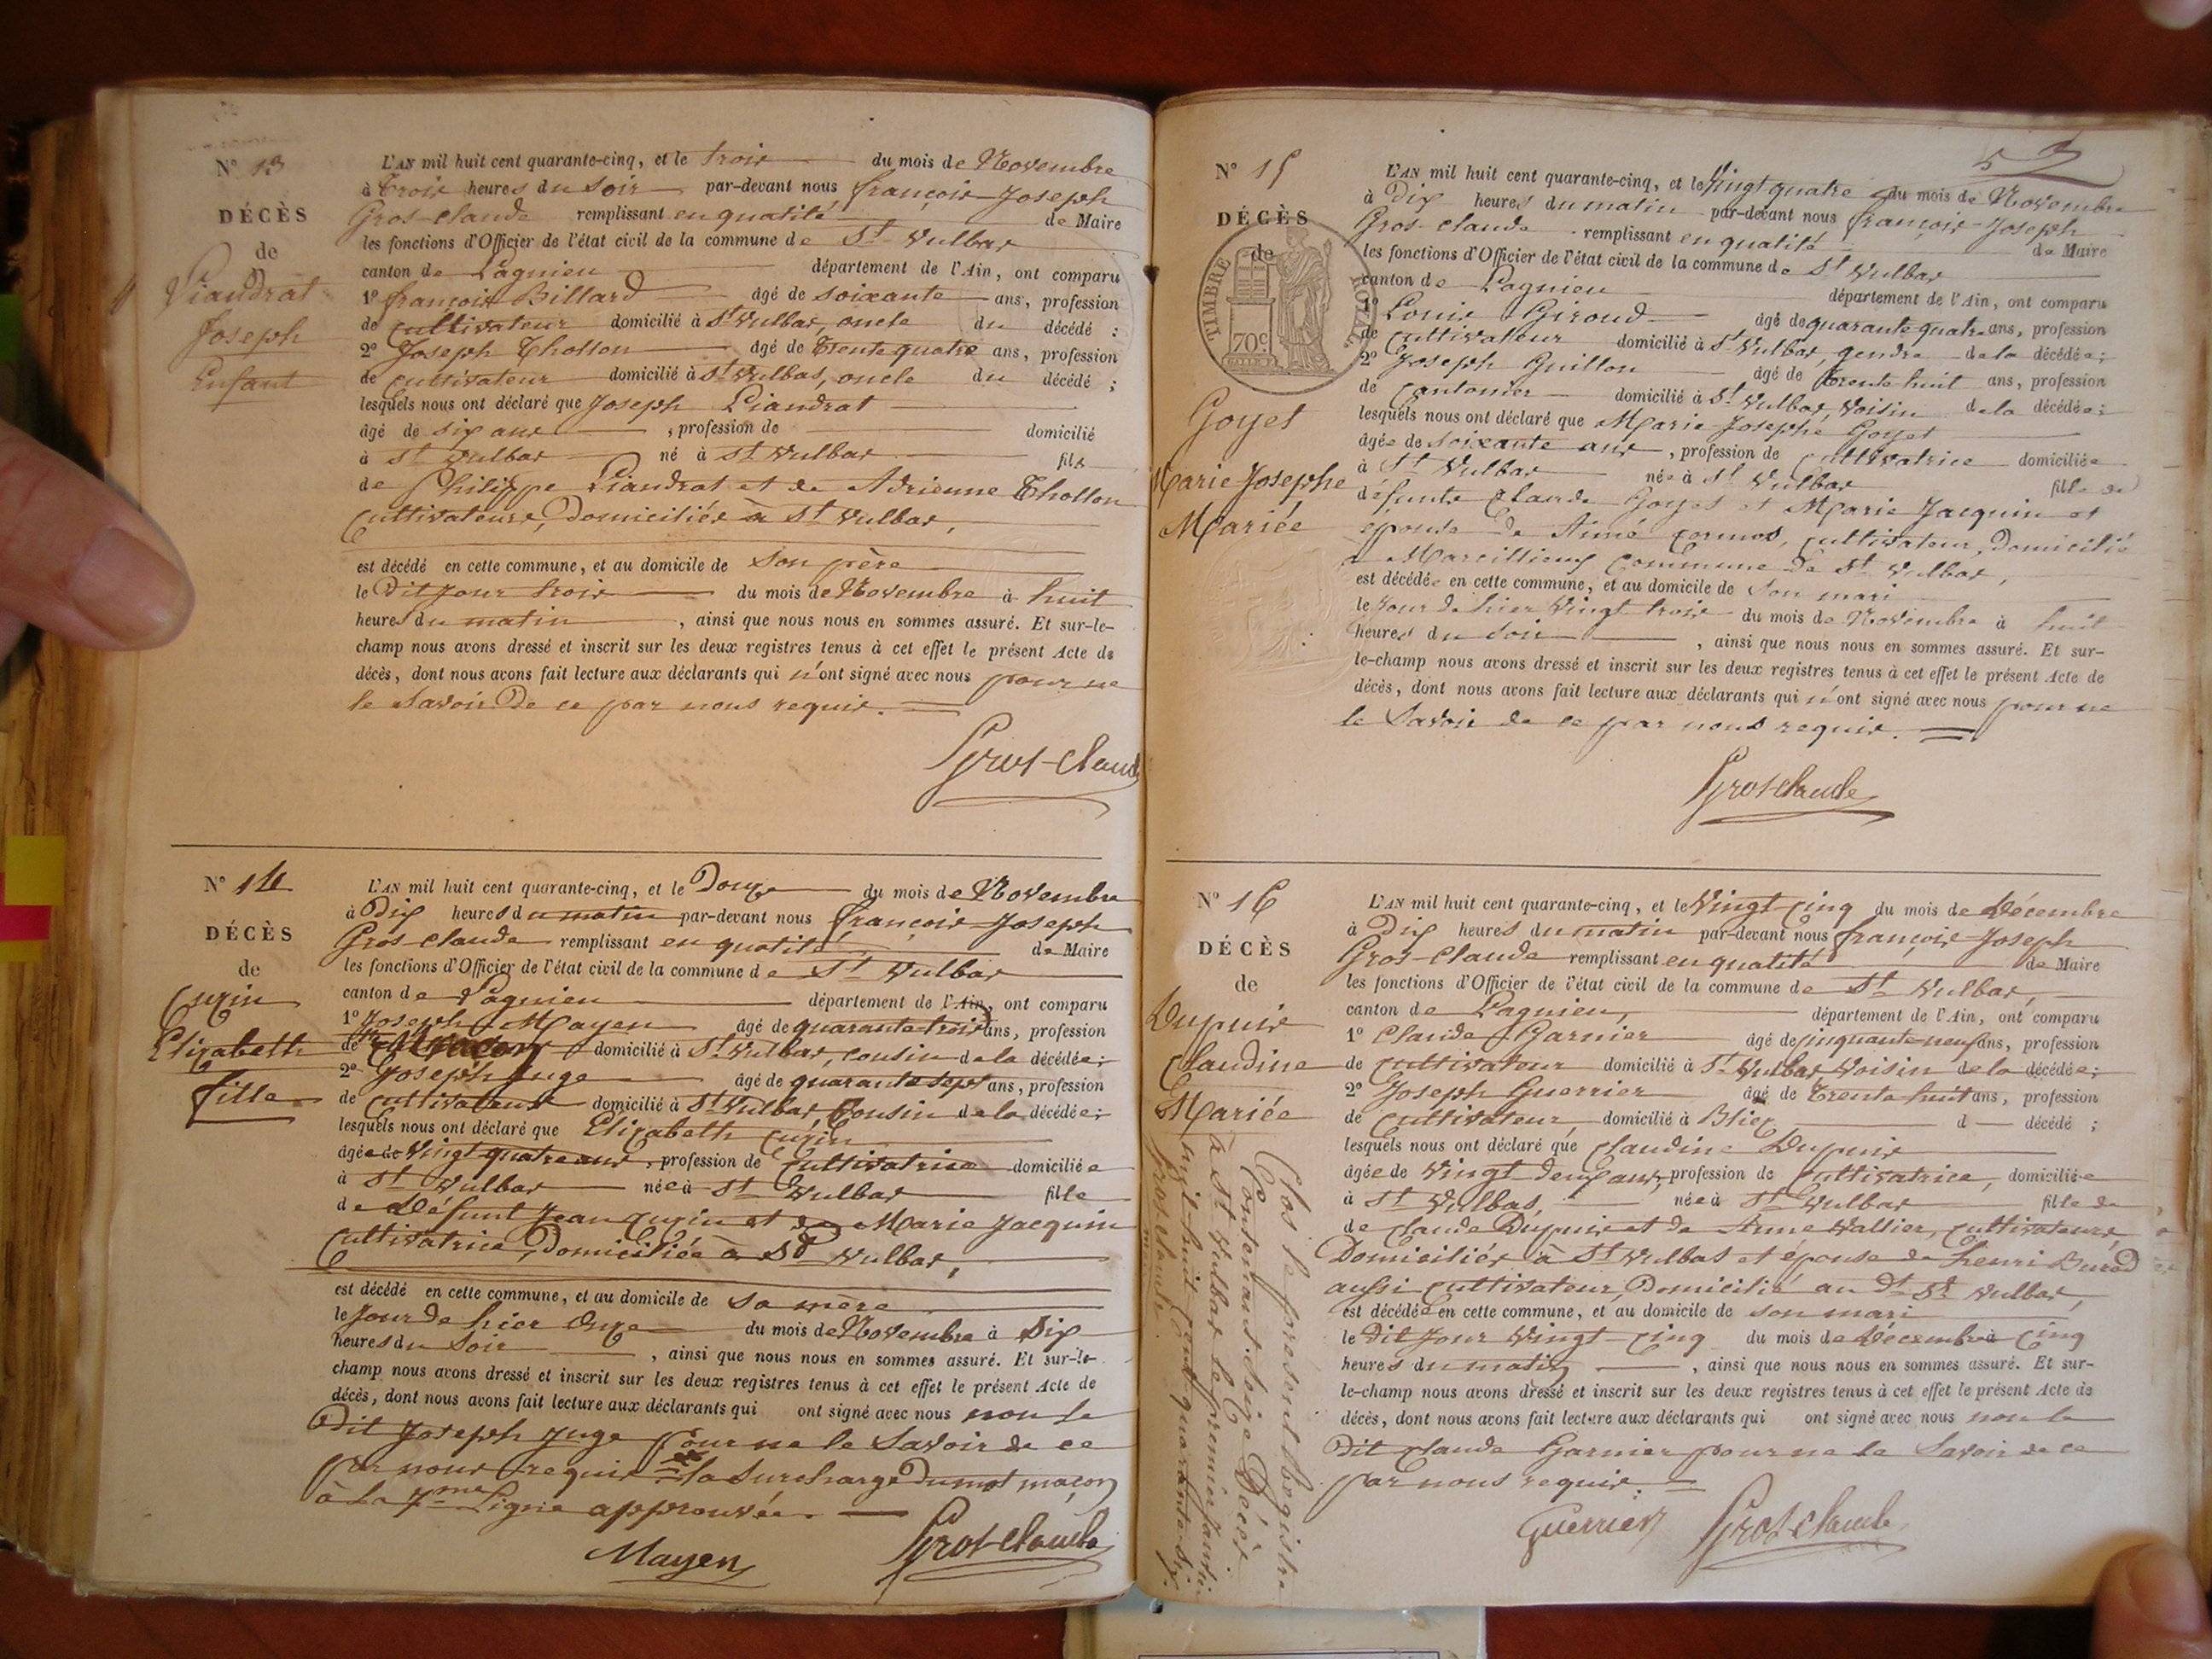 N° 13
DÉCÈS
de
Liandrat
Joseph
Enfant
L'AN mil huit cent quarante-cinq, et le trois du mois de Novembre
à trois heures du soir par-devant nous françois Joseph
Gros-claude remplissant en qualité de Maire
les fonctions d'Officier de l'état civil de la commune de St Vulbas
canton de Lagnieu département de l'Ain, ont comparu
1° françois Billard âgé de soixante ans, profession
de cultivateur domicilié à St Vulbas, oncle du décédé :
2° Joseph Thollon âgé de trente quatre ans, profession
de cultivateur domicilié à St Vulbas, oncle du décédé ;
lesquels nous ont déclaré que Joseph Liandrat
âgé de six ans , profession de domicilié
à St Vulbas né à St Vulbas fils
de Philippe Liandrat et de Adrienne Thollon
Cultivateurs, Domiciliés à St Vulbas,
est décédé en cette commune, et au domicile de son père
le dit jour trois du mois de Novembre à huit
heures du matin , ainsi que nous nous en sommes assuré. Et sur-le-
champ nous avons dressé et inscrit sur les deux registres tenus à cet effet le présent Acte de
décès, dont nous avons fait lecture aux déclarants qui n'ont signé avec nous pour ne
le savoir De ce par nous requis.
Gros-Claude
N° 14
DÉCÈS
de
Cuzin
Elizabeth
fille
L'AN mil huit cent quarante-cinq, et le Douze du mois de Novembre
à Dix heures du matin par-devant nous françois Joseph
Gros-claude remplissant en qualité de Maire
les fonctions d'Officier de l'état civil de la commune de St Vulbas
canton de Lagnieu département de l'Ain, ont comparu
1° Joseph Mayen âgé de quarante trois ans, profession
de Maçon domicilié à St Vulbas, cousin de la décédée ;
2° Joseph Juge âgé de quarante sept ans, profession
de cultivateur domicilié à St Vulbas Cousin de la décédée ;
lesquels nous ont déclaré que Elizabeth Cuzin
âgée de Vingt quatre ans , profession de Cultivatrice domiciliée
à St Vulbas née à St Vulbas fille
de Défunt Jean Cuzin et de Marie Jacquin
Cultivatrice, Domiciliée à St Vulbas,
est décédé en cette commune, et au domicile de sa mère
le Jour de hier Onze du mois de Novembre à Dix
heures du Soir , ainsi que nous nous en sommes assuré. Et sur-le-
champ nous avons dressé et inscrit sur les deux registres tenus à cet effet le présent Acte de
décès, dont nous avons fait lecture aux déclarants qui ont signé avec nous non le
Dit Joseph Juge pour ne le Savoir de ce
par nous requis la Surcharge Du mot maçon
à la 7me Ligne approuvée.
Mayen Gros-Claude
N° 15
DÉCÈS
de
TIMBRE ROYAL
70c
Goyet
Marie Josephe
Mariée
L'AN mil huit cent quarante-cinq, et le Vingt quatre du mois de Novembre
à Dix heures du matin par-devant nous françois Joseph
Gros-claude remplissant en qualité de Maire
les fonctions d'Officier de l'état civil de la commune de St Vulbas
canton de Lagnieu département de l'Ain, ont comparu
1° Louis Giroud âgé de quarante quatre ans, profession
de cultivateur domicilié à St Vulbas, gendre de la décédée ;
2° Joseph Guillon âgé de trente huit ans, profession
de Cantonier domicilié à St Vulbas, Voisin de la décédée ;
lesquels nous ont déclaré que Marie Josephe Goyet
âgée de soixante ans , profession de Cultivatrice domiciliée
à St Vulbas née à St Vulbas fille de
défunts Claude Goyet et Marie Jacquin et
épouse de Aimé Cormos, cultivateur, Domicilié
à Marcillieux Commune de St Vulbas,
est décédée en cette commune, et au domicile de Son mari
le Jour de hier Vingt trois du mois de Novembre à huit
heures du soir , ainsi que nous nous en sommes assuré. Et sur-
le-champ nous avons dressé et inscrit sur les deux registres tenus à cet effet le présent Acte de
décès, dont nous avons fait lecture aux déclarants qui n'ont signé avec nous pour ne
le Savoir de ce par nous requis.
Gros-Claude
N° 16
DÉCÈS
de
Dupuis
Claudine
Mariée
L'AN mil huit cent quarante-cinq, et le Vingt cinq du mois de Décembre
à Dix heures du matin par-devant nous françois Joseph
Gros-claude remplissant en qualité de Maire
les fonctions d'Officier de l'état civil de la commune de St Vulbas,
canton de Lagnieu, département de l'Ain, ont comparu
1° Claude Garnier âgé de cinquante neuf ans, profession
de Cultivateur domicilié à St Vulbas Voisin de la décédée ;
2° Joseph Guerrier âgé de trente huit ans, profession
de Cultivateur, domicilié à Blies d décédé ;
lesquels nous ont déclaré que Claudine Dupuis
âgée de Vingt deux ans, profession de Cultivatrice, domiciliée
à St Vulbas, née à St Vulbas fille de
de Claude Dupuis et de Anne Vallier, Cultivateurs,
Domiciliés à St Vulbas et épouse de henri
aussi Cultivateur, Domicilié au dt St Vulbas,
est décédée en cette commune, et au domicile de son mari
le Dit Jour Vingt cinq du mois de Décembre à Cinq
heures du matin , ainsi que nous nous en sommes assuré. Et sur-
le-champ nous avons dressé et inscrit sur les deux registres tenus à cet effet le présent Acte de
décès, dont nous avons fait lecture aux déclarants qui ont signé avec nous non le
Dit Claude Garnier pour ne le Savoir de ce
par nous requis.
Guerrier Gros-Claude
Clos le présent Registre
Contenant Seize Décès
à St Vulbas le premier Janvier
mil huit cent quarante Six.
Gros-claude